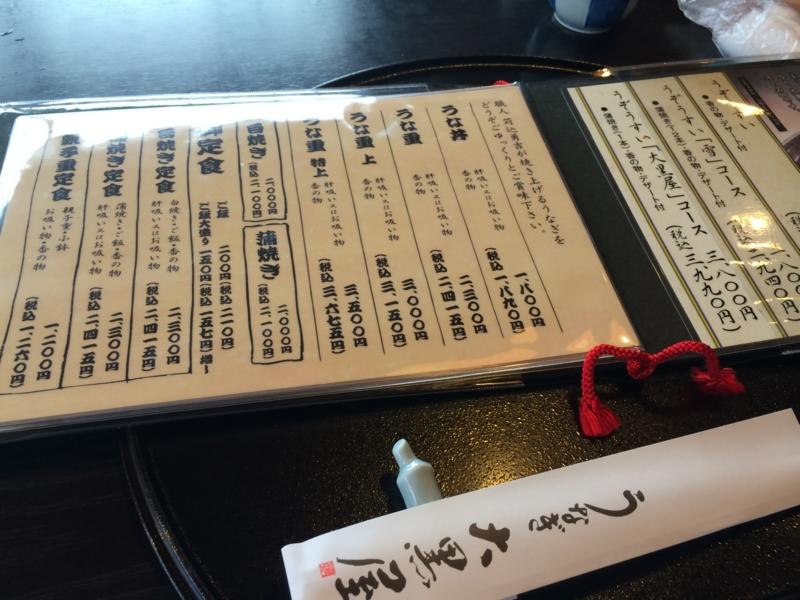 うぞうすい「雪」コース
香の物・デザート付
二、八〇〇円
(税込 二、九四〇円)
うぞうすい「大黒屋」コース
蒲焼き(1/2本)・香の物・デザート付
三、八〇〇円
(税込 三、九九〇円)
蒲焼き(一本)・香の物・デザート付
職人・苅込勇吉の焼き上げるうなぎを
どうぞごゆっくりとご賞味下さい。
うな丼
肝吸い又はお吸い物
香の物
一、八〇〇円
(税込 一、八九〇円)
うな重
肝吸い又はお吸い物
香の物
二、三〇〇円
(税込 二、四一五円)
うな重 上
肝吸い又はお吸い物
香の物
三、〇〇〇円
(税込 三、一五〇円)
うな重 特上
肝吸い又はお吸い物
香の物
三、五〇〇円
(税込 三、六七五円)
白焼き
二、〇〇〇円
(税込 二、一〇〇円)
蒲焼き
二、〇〇〇円
(税込 二、一〇〇円)
定食
ご飯
二〇〇円(税込 二一〇円)
ご飯大盛り 一五〇円(税込 一五七円)増し
白焼き定食
白焼き・ご飯・香の物
肝吸い又はお吸い物
二、三〇〇円
(税込 二、四一五円)
蒲焼き定食
蒲焼き・ご飯・香の物
肝吸い又はお吸い物
二、三〇〇円
(税込 二、四一五円)
重定食
親子重・小鉢
お吸い物・香の物
一、二〇〇円
(税込 一、二六〇円)
うなぎ 大黒屋